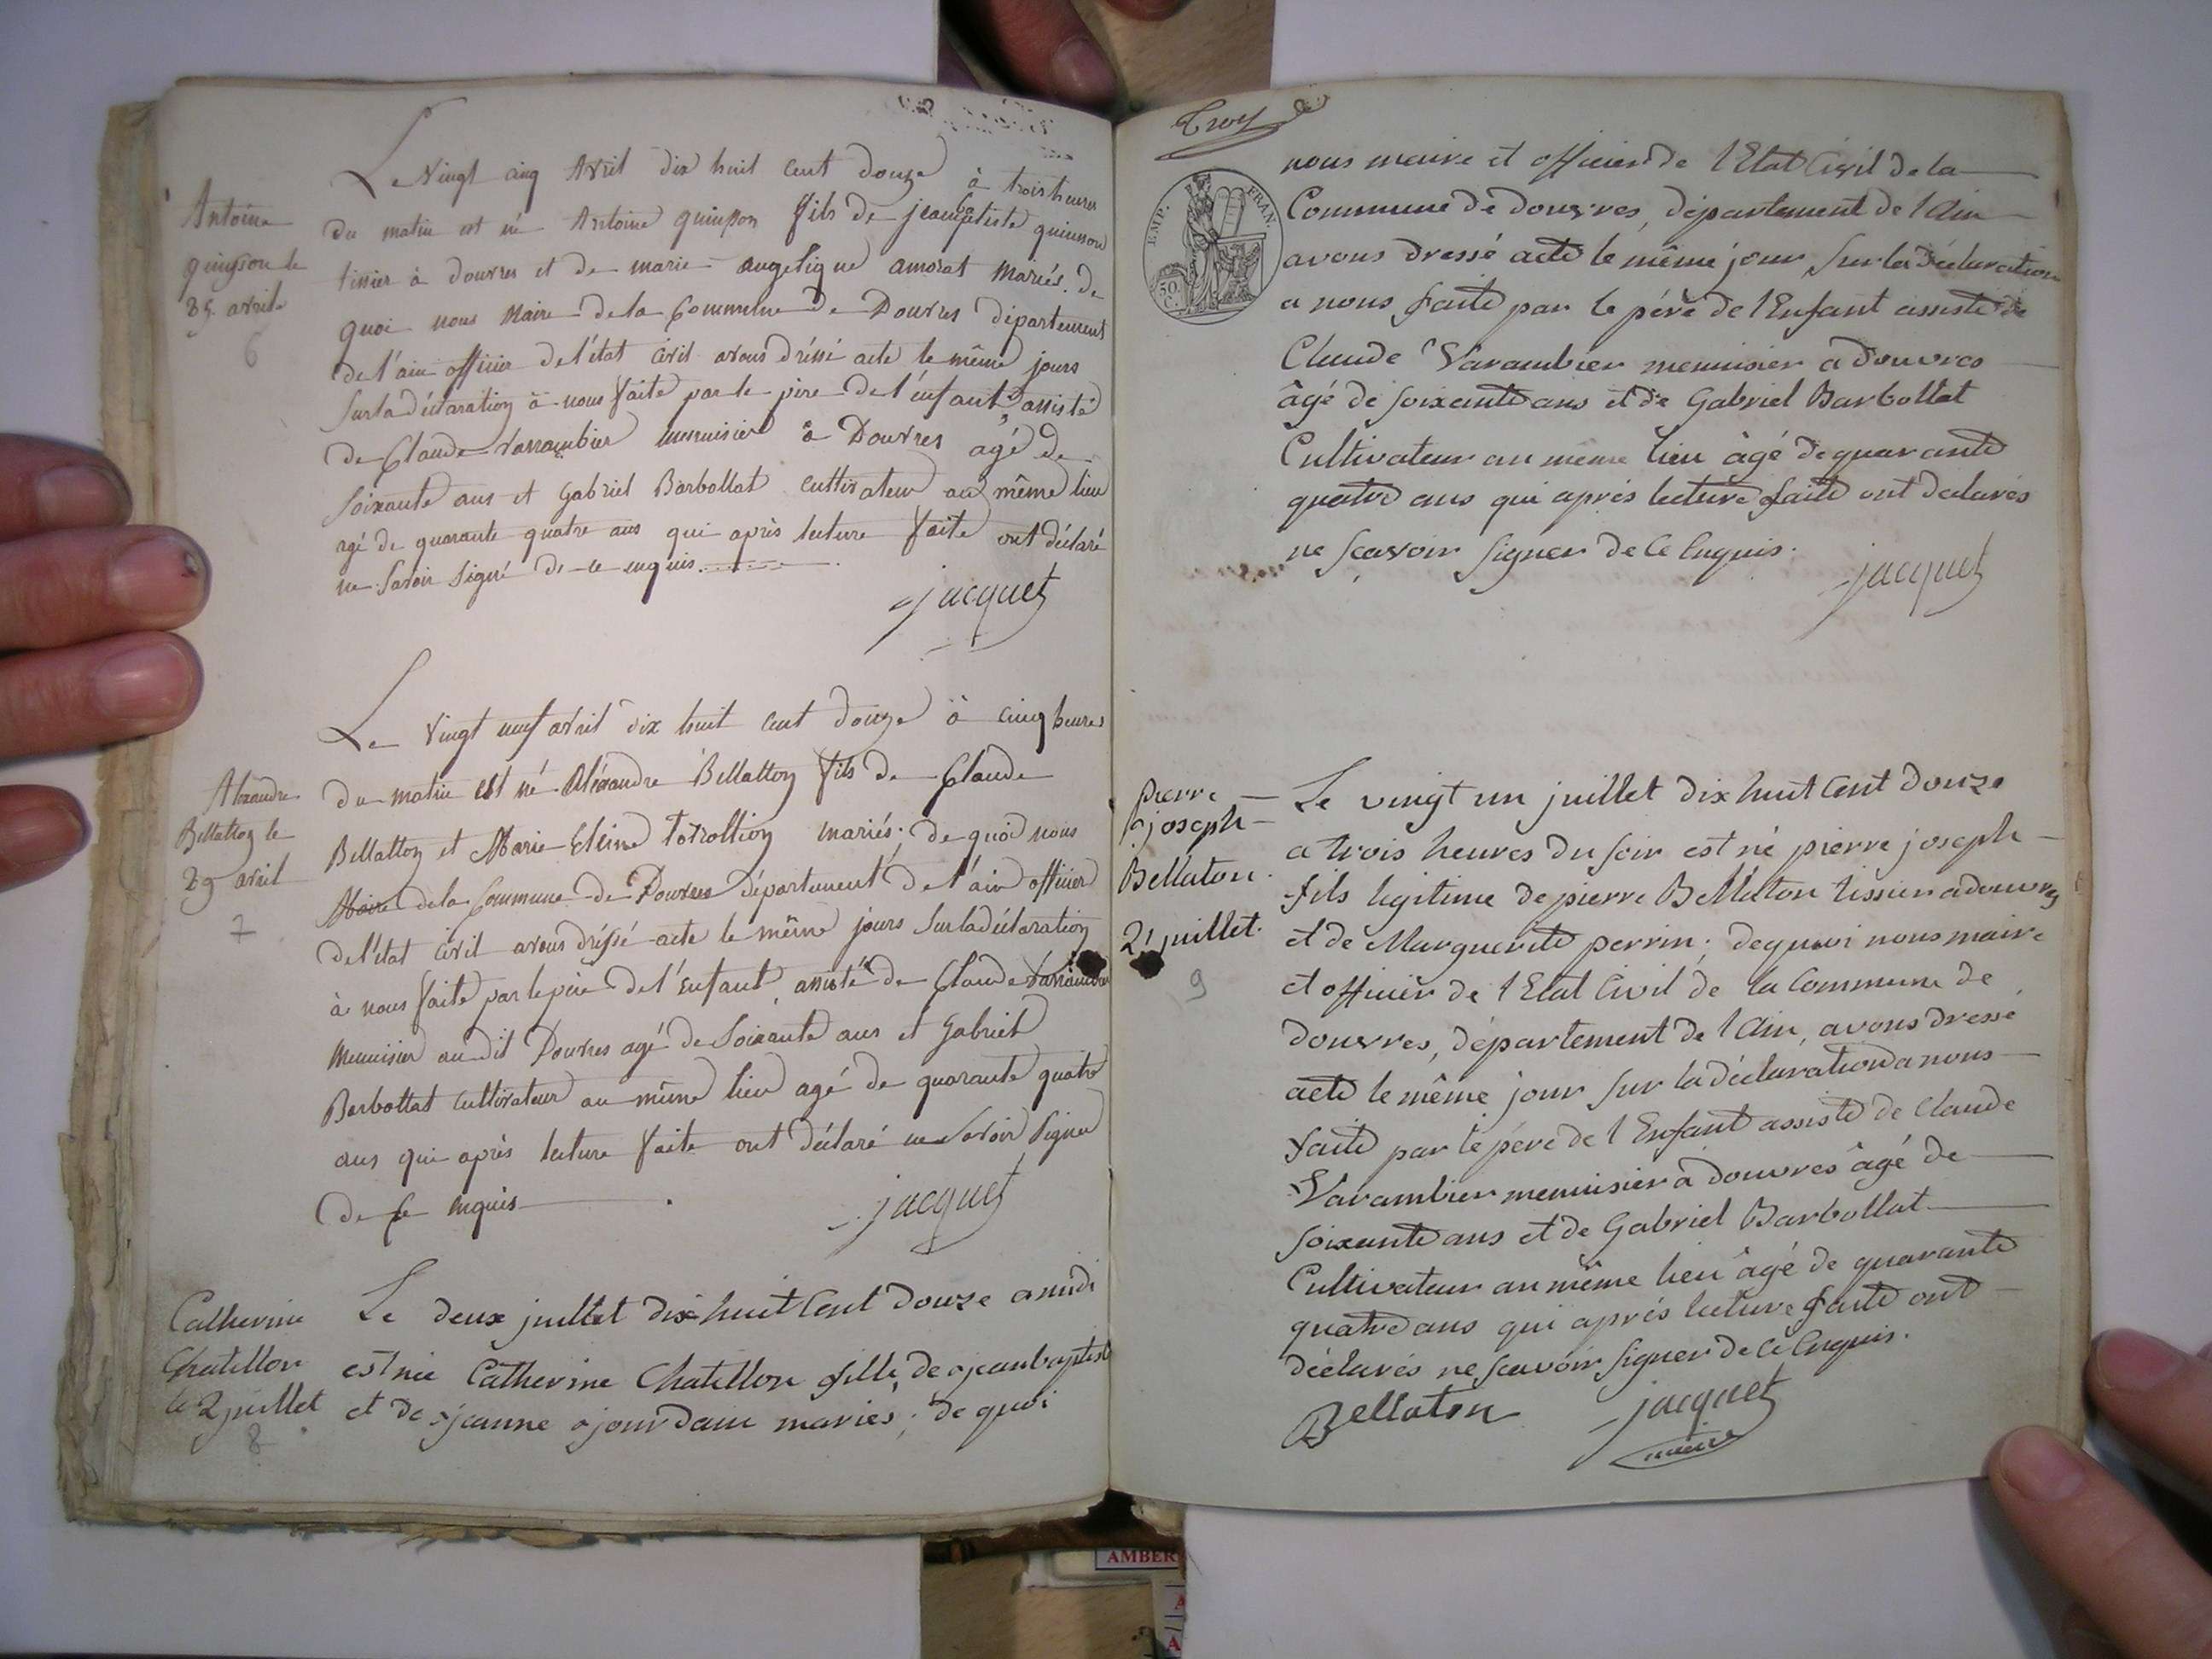 Antoine
quinson le
25. avril
6
Le Vingt cinq Avril dix huit cent douze à trois heures
du matin est né Antoine quinson fils de jean Bptiste quinson
tissier à douvres et de marie angelique amorat Mariés. de
quoi nous Maire de la Commune de Douvres département
de l'ain officier de l'état civil avons dréssé acte le même jours
sur la déclaration à nous faite par le père de l'enfant assisté
de Claude Varrambier menuisier à Douvres agé de
soixante ans et Gabriel Barbollat cultivateur au même lieu
agé de quarante quatre ans qui après lecture faite ont déclaré
ne savoir signé de ce enquis.
jacquet
Alexandre
Bellatton le
29 avril
7
Le Vingt neuf avril dix huit cent douze à cinq heures
du matin est né Aléxandre Bellatton fils de Claude
Bellatton et Marie mariés; de quoi nous
Maire de la Commune de Douvres département de l'ain officier
de l'état civil avons dréssé acte le même jours sur la déclaration
à nous faite par le père de l'enfant, assisté de Claude Varrambier
Menuisier au dit Douvres agé de Soixante ans et Gabriel
Barbollat cultivateur au même lieu agé de quarante quatre
ans qui après lecture faite ont déclaré ne savoir signer
de ce enquis
jacquet
Catherine
Chatillon
le 2 juillet
8
Le deux juillet dix huit Cent douze a midi
est née Catherine Chatillon fille de jean baptiste
et de jeanne jourdain mariés; de quoi
Troy
EMP. FRAN.
50 C.
nous maire et officier de l'Etat Civil de la
Commune de douvres, département de l'Ain
avons dressé acte le même jour, sur la déclaration
a nous faite par le pére de l'Enfant assisté de
Claude Varambier menuisier a douvres
âgé de soixante ans et de Gabriel Barbollat
Cultivateur au même lieu âgé de quarante
quatre ans qui aprés lecture faite ont declarés
ne sçavoir signer de Ce Enquis.
jacquet
pierre
joseph
Bellaton.
21 juillet.
9
Le vingt un juillet dix huit Cent douze
a trois heures du soir est né pierre joseph
fils legitime de pierre Bellaton tissier a douvres
et de Marguerite perrin; de quoi nous maire
et officier de l'Etat Civil de la Commune de
douvres, département de l'Ain, avons dressé
acte le même jour sur la déclaration a nous
faite par le pére de l'Enfant assisté de Claude
Varambier menuisier à douvres âgé de
soixante ans et de Gabriel Barbollat
Cultivateur au même lieu âgé de quarante
quatre ans qui aprés lecture faite ont
déclarés ne sçavoir signer de Ce Enquis.
Bellaton
jacquet
maire
AMBER